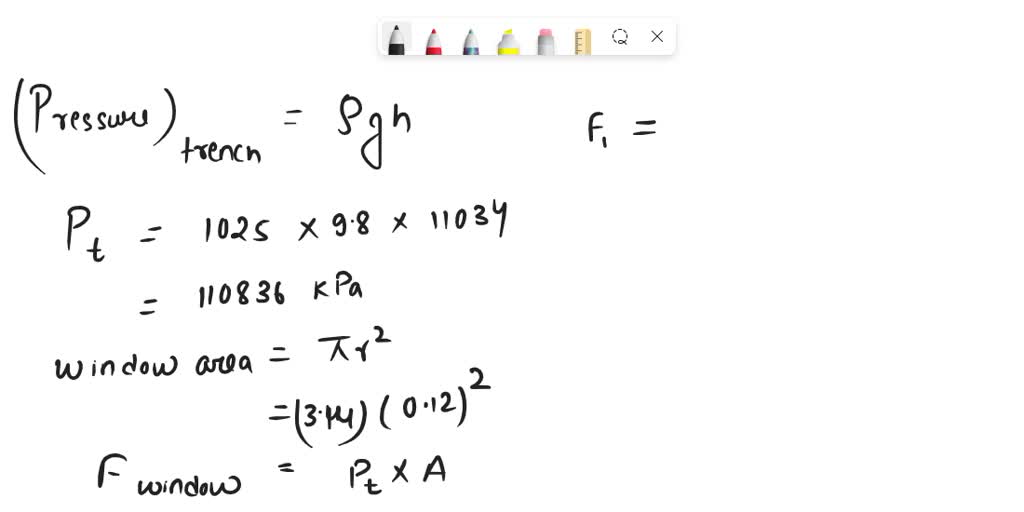 (Pressure)trench = ρgh
Pt = 1025 × 9.8 × 11034
= 110836 kPa
window area = πr²
= (3.14) (0.12)²
F window = Pt × A
F₁ =